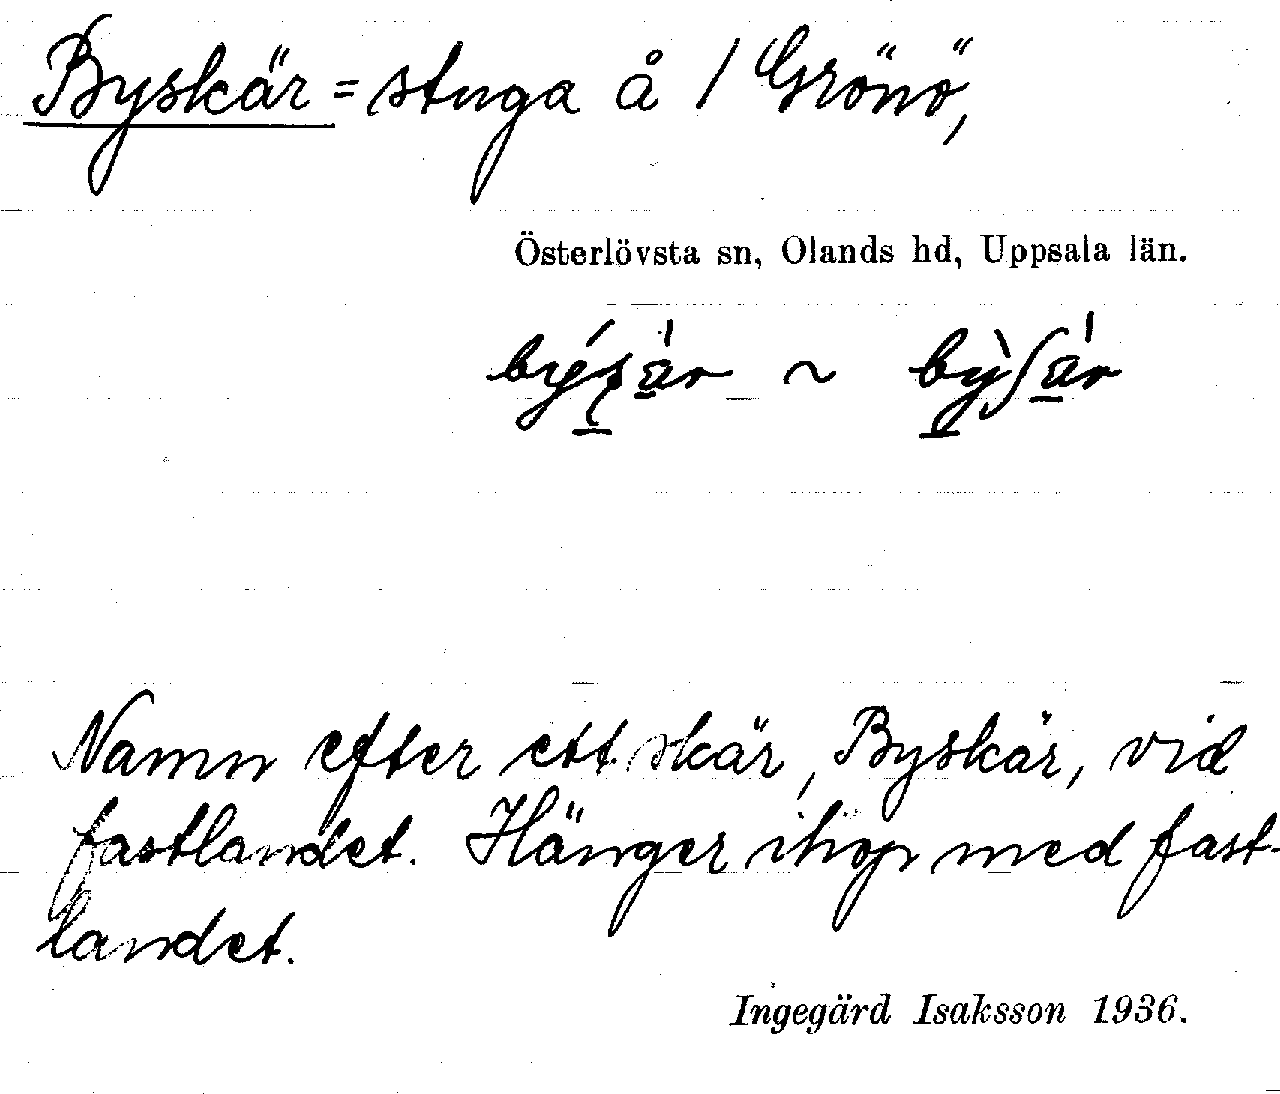 Byskär = stuga å / Grönö,
Österlövsta sn, Olands hd, Uppsala län.
Namn efter ett skär, Byskär, vid
fastlandet. Hänger ihop med fast-
landet.
Ingegärd Isaksson 1936.